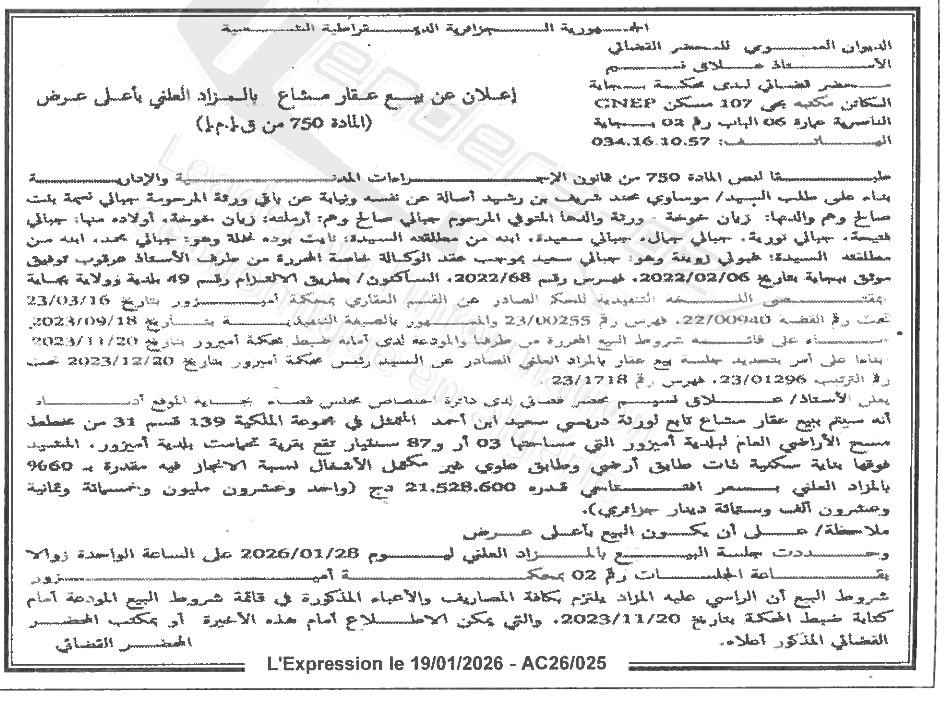 الجمهورية الجزائرية الديمقراطية الشعبية
الديوان العمومي للمحضر القضائي
الأستاذ علاق نسيم
محضر قضائي لدى محكمة بجاية
الكائن مكتبه بحي 107 مسكن CNEP
الناصرية عمارة 06 الباب رقم 02 بجاية
الهاتف: 034.16.10.57
إعلان عن بيع عقار مشاع بالمزاد العلني بأعلى عرض
(المادة 750 من ق.إ.م.إ)
طبقا لنص المادة 750 من قانون الإجراءات المدنية والإدارية
بناء على طلب السيد/ موساوي محند شريف بن رشيد أصالة عن نفسه ونيابة عن باقي ورثة المرحومة جبالي نسيمة بنت
صالح وهم والدتها: زيان خوخة. ورثة والدها المتوفي المرحوم جبالي صالح وهم: أرملته: زيان خوخة، أولاده منها: جبالي
فتيحة، جبالي نورية، جبالي جمال، جبالي سعيدة، ابنه من مطلقته السيدة: نايت بوده نحلة وهو: جبالي محمد، ابنه من
مطلقته السيدة: زوينة وهو: جبالي سعيد بموجب عقد الوكالة خاصة المحررة من طرف الأستاذ عرقوب توفيق
موثق ببجاية بتاريخ 2022/02/06، فهرس رقم 2022/68، الساكنون/ بطريق الالتزام رقم 49 بلدية وولاية بجاية
بمقتضى النسخة التنفيذية للحكم الصادر عن القسم العقاري بمحكمة أميزور بتاريخ 23/03/16
تحت رقم القضية 22/00940، فهرس رقم 23/00255 والممهور بالصيغة التنفيذية بتاريخ 2023/09/18
بناء على قائمة شروط البيع المحررة من طرفنا والمودعة لدى أمانة ضبط محكمة أميزور بتاريخ 2023/11/20
بناءا على أمر بتحديد جلسة بيع عقار بالمزاد العلني الصادر عن السيد رئيس محكمة أميزور بتاريخ 2023/12/20 تحت
رقم الترتيب 23/01296، فهرس رقم 23/1718.
يعلن الأستاذ/ علاق نسيم محضر قضائي لدى دائرة اختصاص مجلس قضاء بجاية الموقع أدناه
أنه سيتم بيع عقار مشاع تابع لورثة دريسي سعيد ابن أحمد المتمثل في مجموعة الملكية 139 قسم 31 من مخطط
مسح الأراضي العام لبلدية أميزور التي مساحتها 03 آر و87 سنتيار تقع بقرية بلدية أميزور، المشيد
فوقها بناية سكنية ذات طابق أرضي وطابق علوي غير مكتمل الأشغال نسبة الانجاز فيه مقدرة بـ 60%
بالمزاد العلني بسعر افتتاحي قدره 21.528.600 دج (واحد وعشرون مليون وخمسمائة وثمانية
وعشرون ألف وستمائة دينار جزائري).
ملاحظة/ على أن يكون البيع بأعلى عرض
وحددت جلسة البيع بالمزاد العلني ليوم 2026/01/28 على الساعة الواحدة زوالا
بقاعة الجلسات رقم 02 بمحكمة أميزور
شروط البيع أن الراسي عليه المزاد يلتزم بكافة المصاريف والأعباء المذكورة في قائمة شروط البيع المودعة أمام
كتابة ضبط المحكمة بتاريخ 2023/11/20، والتي يمكن الاطلاع أمام هذه الأخيرة أو بمكتب المحضر
القضائي المذكور أعلاه.
المحضر القضائي
L'Expression le 19/01/2026 - AC26/025